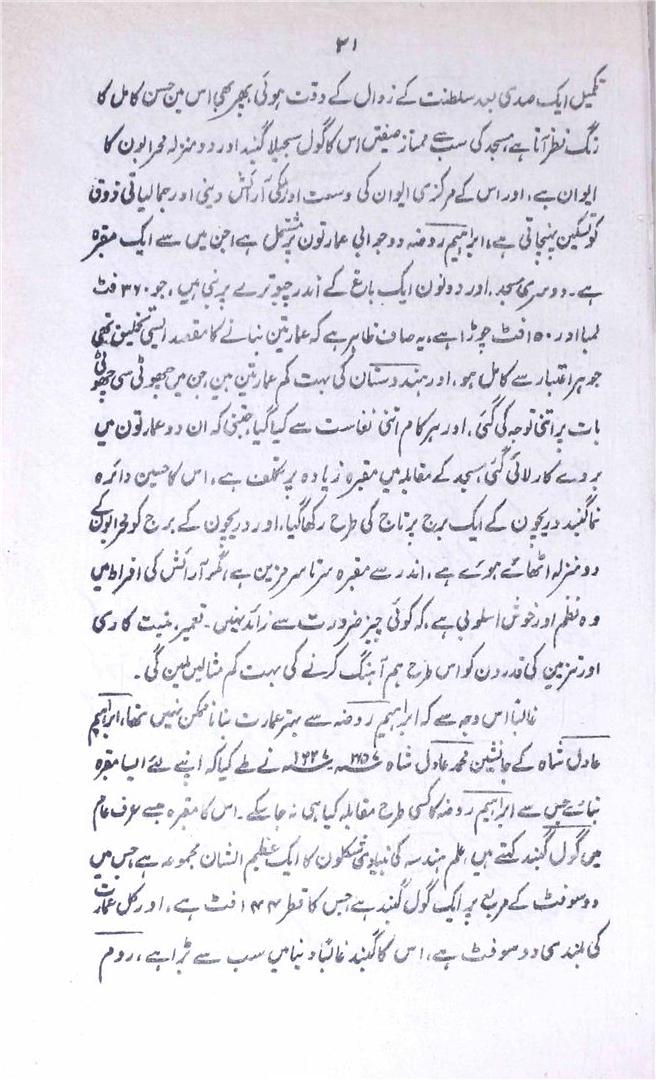 ۳۱
تکمیل ایک صدی بعد سلطنت کے زوال کے وقت ہوئی، پھر بھی اس مین حسن کامل کا
رنگ نظر آتا ہے، مسجد کی سب سے ممتاز صفتین اس کا گول سجیلا گنبد اور دو منزلہ محرابون کا
ایوان ہے، اور اس کے مرکزی ایوان کی وسعت اور اسکی آرائش دینی اور جمالیاتی ذوق
کو تسکین پہنچاتی ہے، ابراہیم روضہ دو جوابی عمارتون پر مشتمل ہے، جن میں سے ایک مقبرہ
ہے۔ دوسری مسجد، اور دونون ایک باغ کے اندر چبوترے پر بنی ہیں، جو ۳۶۰ فٹ
لمبا اور ۱۵۰ فٹ چوڑا ہے، یہ صاف ظاہر ہے کہ عمارتین بنانے کا مقصد ایسی تخلیق تھی
جو ہر اعتبار سے کامل ہو، اور ہندوستان کی بہت کم عمارتین ہین، جن میں چھوٹی سی چھوٹی
بات پر اتنی توجہ کی گئی، اور ہر کام اتنی نفاست سے کیا گیا، جتنی کہ ان دو عمارتون میں
بروے کار لائی گئی، مسجد کے مقابلہ میں مقبرہ زیادہ پر تکلف ہے، اس کا حسین دائرہ
نما گنبد دریچون کے ایک برج پر تاج کی طرح رکھا گیا، اور دریچون کے برج کو محرابون کے
دو منزلہ اٹھائے ہوئے ہے، اندر سے مقبرہ سرتاسر مزین ہے، مگر آرائش کی افراط میں
وہ نظم اور خوش اسلوبی ہے، کہ کوئی چیز ضرورت سے زائد نہیں۔ تعمیر، منبت کاری
اور تزیین کی قدرون کو اس طرح ہم آہنگ کرنے کی بہت کم مثالیں ملین گی۔
غالبا اس وجہ سے کہ ابراہیم روضہ سے بہتر عمارت بنانا ممکن نہیں تھا، ابراہیم
عادل شاہ کے جانشین محمد عادل شاہ نے طے کیا کہ اپنے لئے ایسا مقبرہ
بنائے جس سے ابراہیم روضہ کا کسی طرح مقابلہ کیا ہی نہ جا سکے۔ اس کا مقبرہ جسے عرف عام
میں گول گنبد کہتے ہیں، علم ہندسہ کی بنیادی شکلون کا ایک عظیم الشان مجموعہ ہے، جس میں
دو سو فٹ کے مربع پر ایک گول گنبد ہے، جس کا قطر ۱۴۴ فٹ ہے، اور کل عمارت
کی بلندی دو سو فٹ ہے، اس کا گنبد غالباً دنیا میں سب سے بڑا ہے، روم